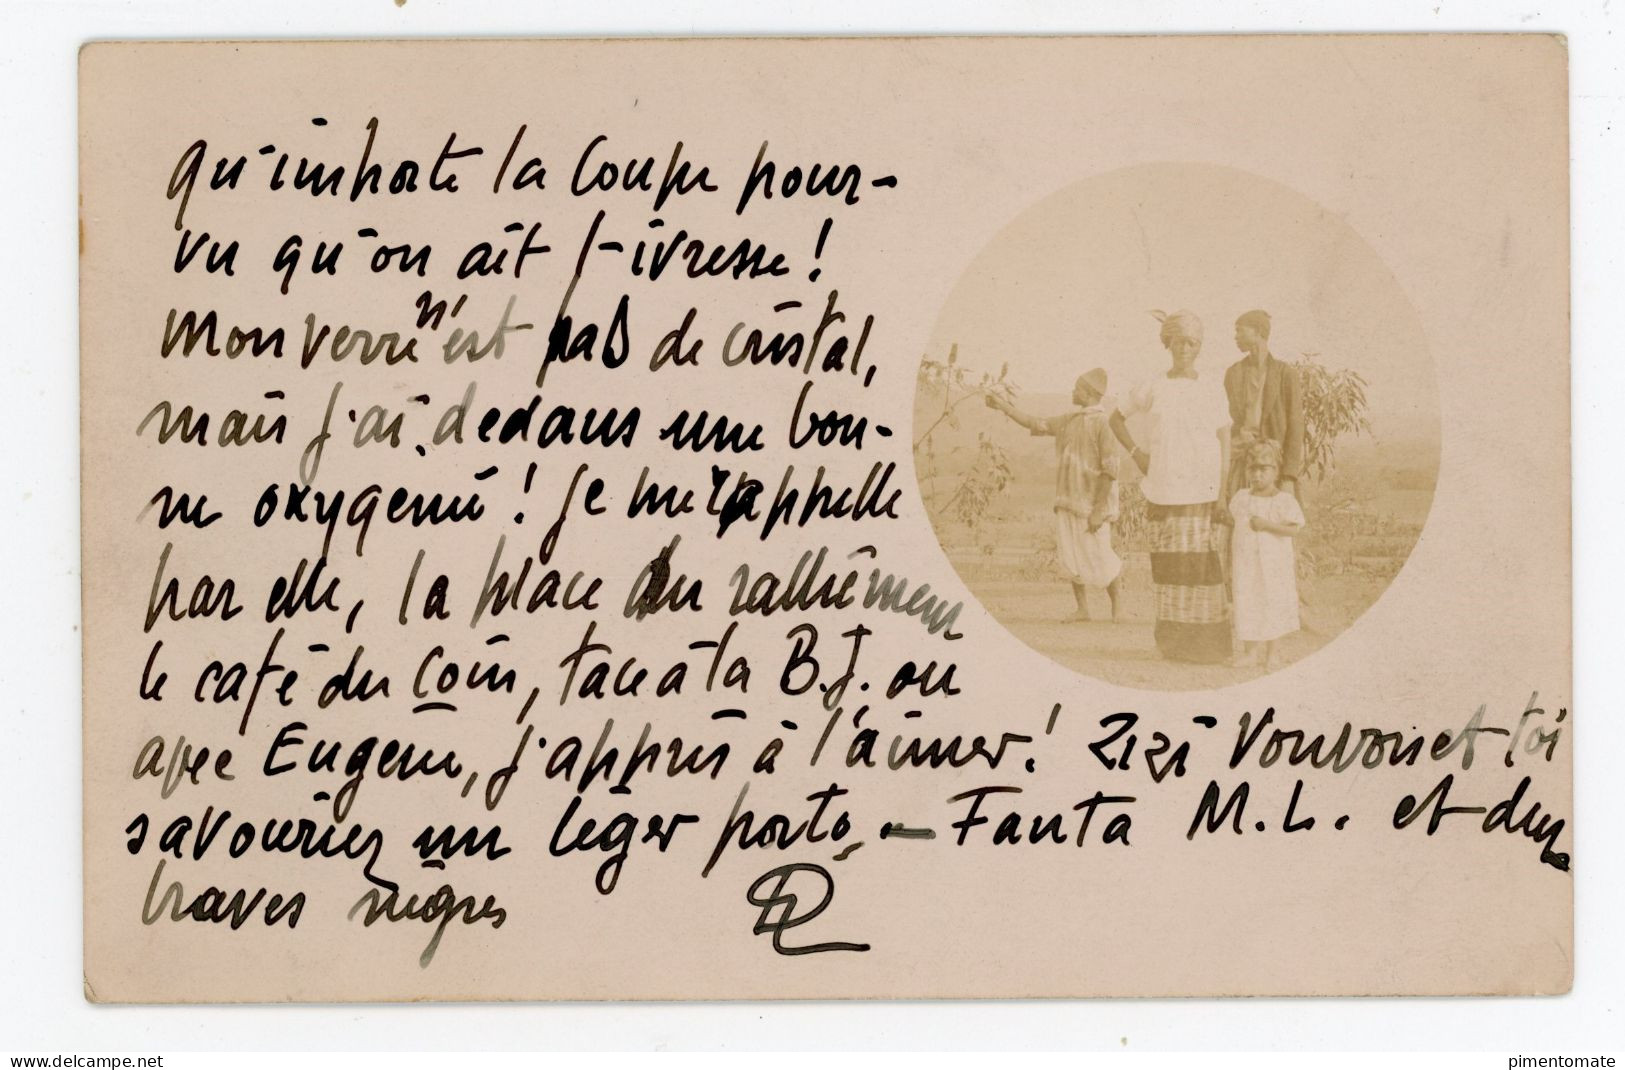 qu'importe la Coupe pour-
vu qu'on ait l'ivresse !
Mon verre n'est pas de cristal,
mais j'ai dedans une bon-
ne oxygenée ! Je me rappelle
par elle, la place du ralliement
le café du Coin, face à la B.J. où
avec Eugene, j'appris à l'aimer ! Zizi Vonvon et toi
savouriez un léger porto, — Fanta M.L. et deux
braves nègres
© delcampe.net
pimentomate